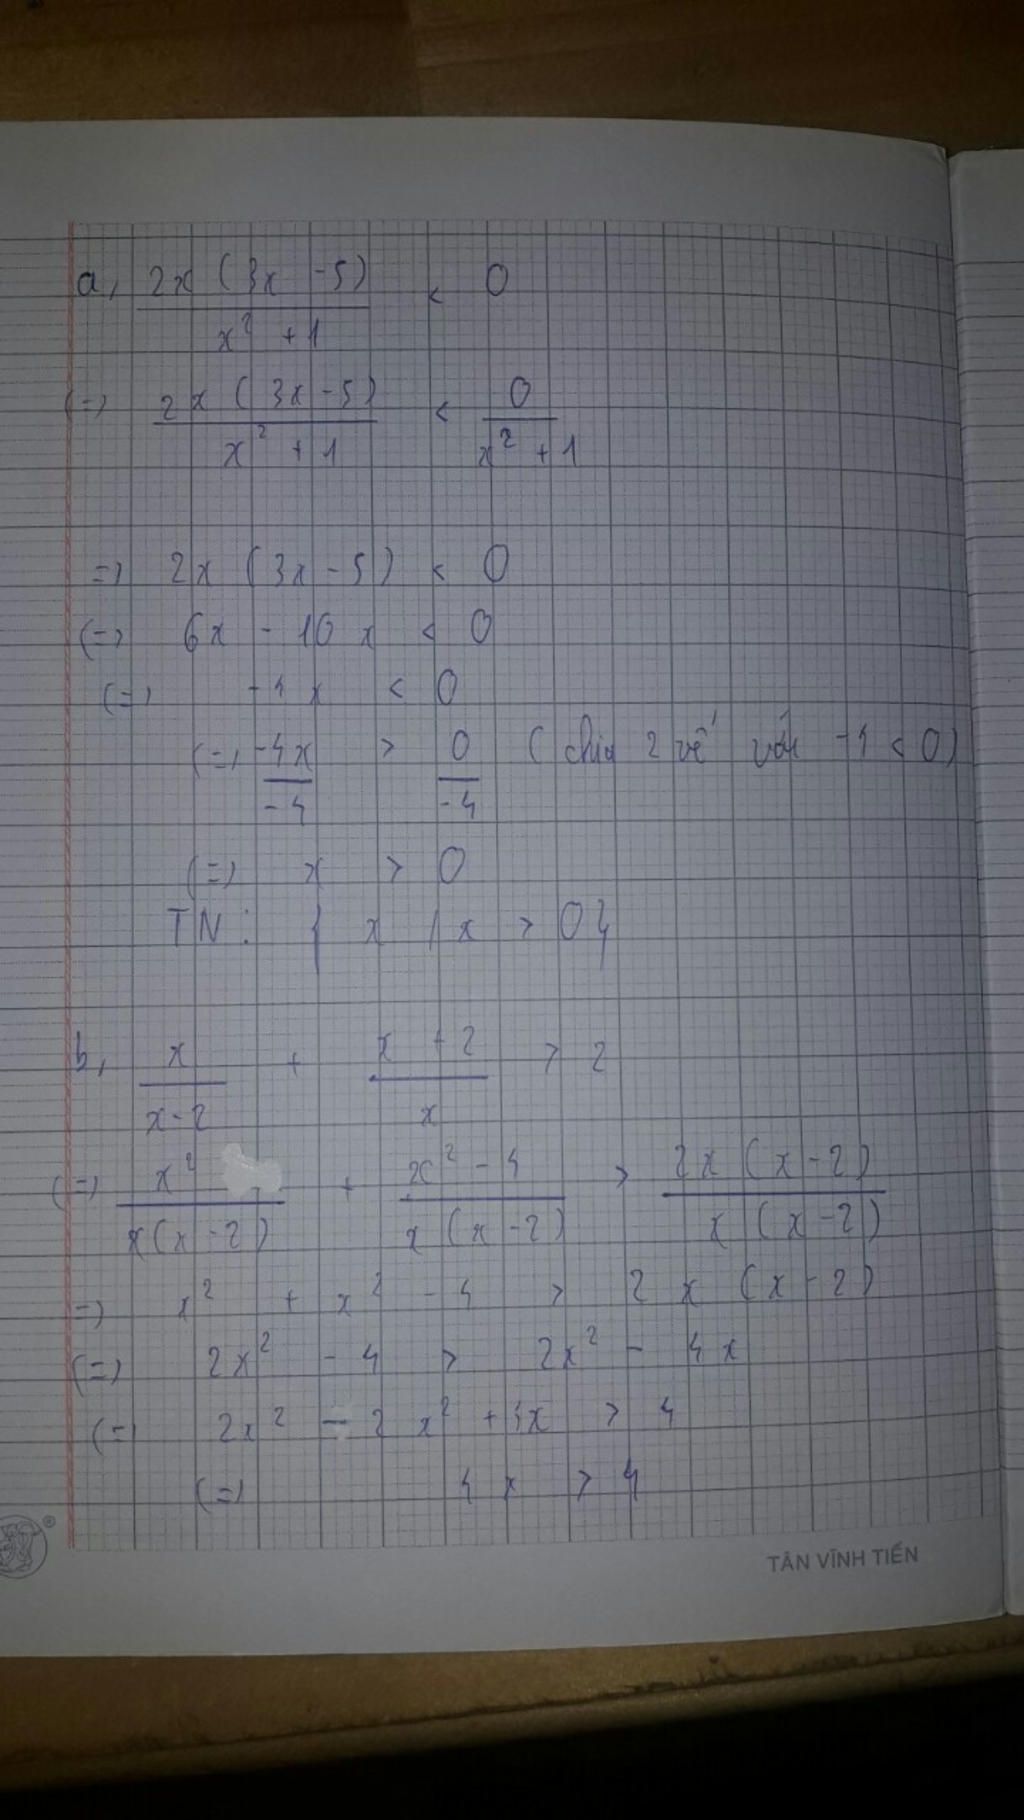 a, 2x (3x - 5) / x² + 1 < 0
(=) 2x (3x - 5) / x² + 1 < 0 / x² + 1
=) 2x (3x - 5) < 0
(=) 6x - 10x < 0
(=) -4x < 0
(=) -4x / -4 > 0 / -4 (chia 2 vế với -4 < 0)
(=) x > 0
TN: { x / x > 0 }
b, x / x - 2 + x + 2 / x > 2
(=) x² / x(x - 2) + x² - 4 / x(x - 2) > 2x (x - 2) / x (x - 2)
=) x² + x² - 4 > 2x (x - 2)
(=) 2x² - 4 > 2x² - 4x
(=) 2x² - 2x² + 4x > 4
(=) 4x > 4
TÂN VĨNH TIẾN